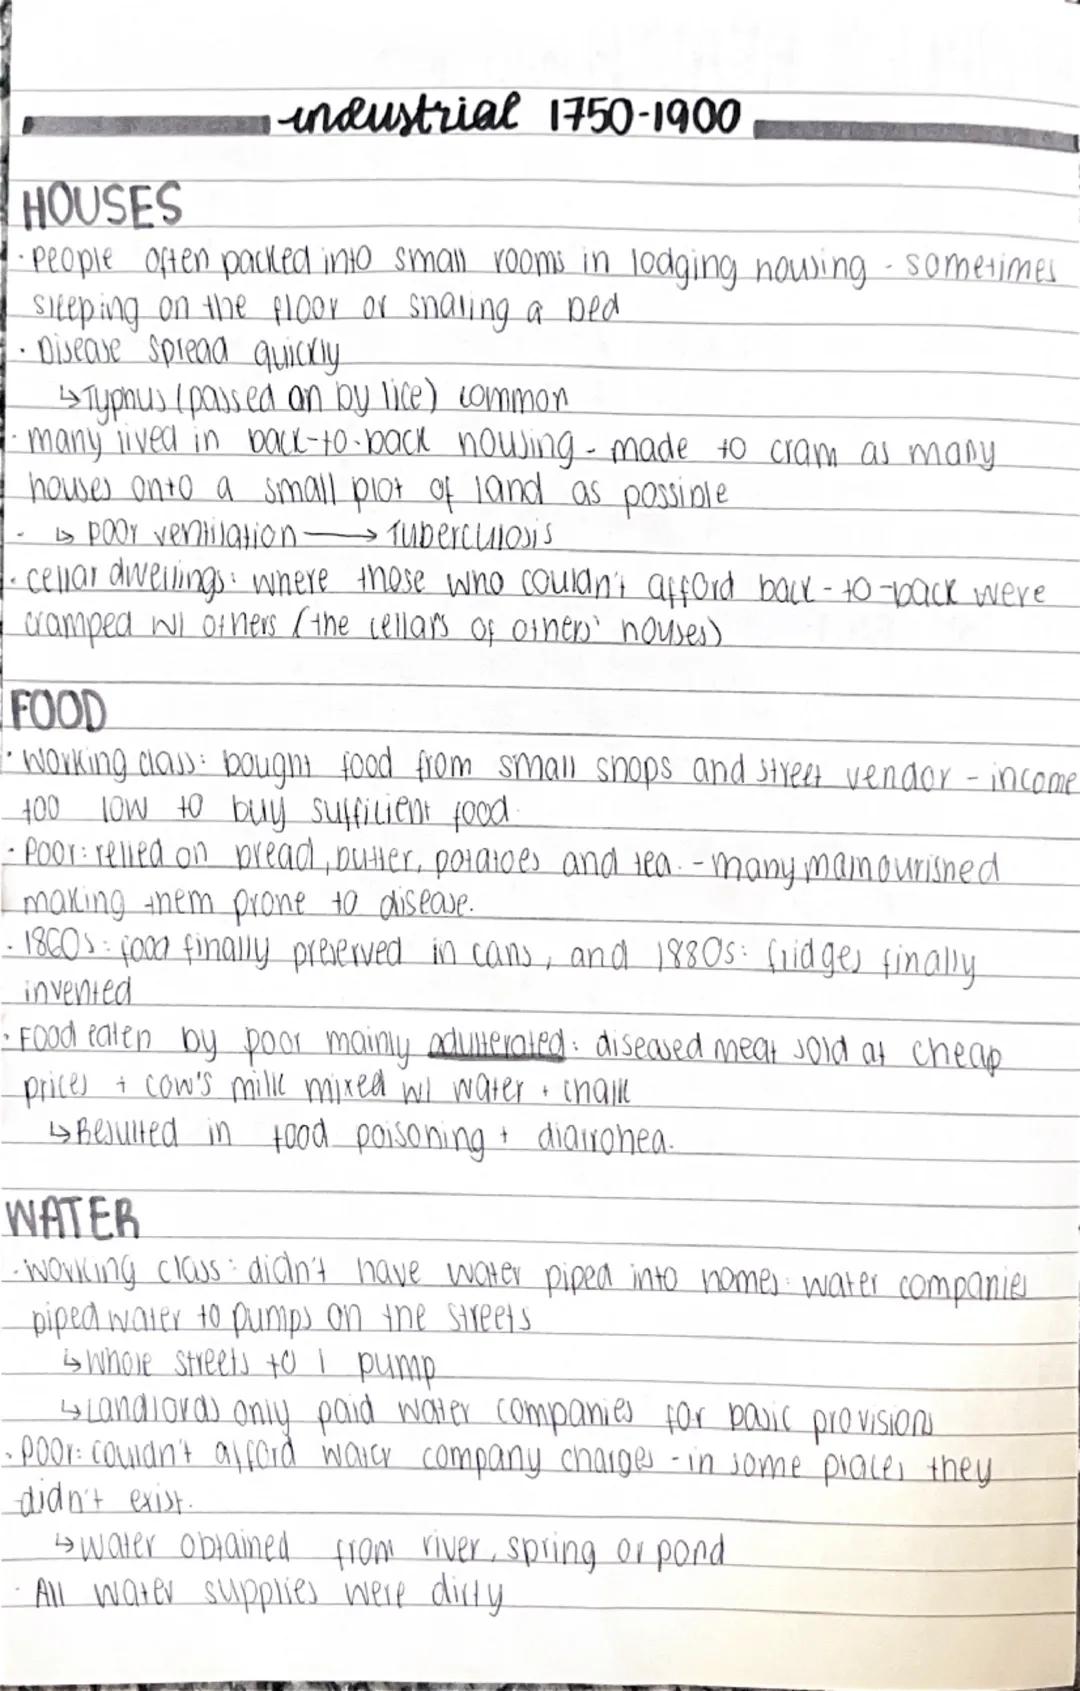 industrial 1750-1900
HOUSES
· People often packed into small rooms in lodging housing - sometimes
sleeping on the floor or sharing a bed
· Disease spread quickly
↳ Typhus (passed on by lice) common
· many lived in back-to-back housing - made to cram as many
houses onto a small plot of land as possible
· ↳ poor ventilation → Tuberculosis
· cellar dwellings: where those who couldn't afford back-to-back were
cramped w/ others (the cellars of others' houses)
FOOD
· Working class: bought food from small shops and street vendor - income
too low to buy sufficient food.
· Poor: relied on bread, butter, potatoes and tea. - many malnourished
making them prone to disease.
· 1860s: food finally preserved in cans, and 1880s: fridges finally
invented
· Food eaten by poor mainly adulterated: diseased meat sold at cheap
prices + cow's milk mixed w/ water + chalk
↳ Resulted in food poisoning + diarrohea.
WATER
· Working class: didn't have water piped into homes: water companies
piped water to pumps on the streets
↳ Whole streets to 1 pump
↳ Landlords only paid water companies for basic provisions
· Poor: couldn't afford water company charges - in some places they
didn't exist.
↳ Water obtained from river, spring or pond
· All water supplies were dirty